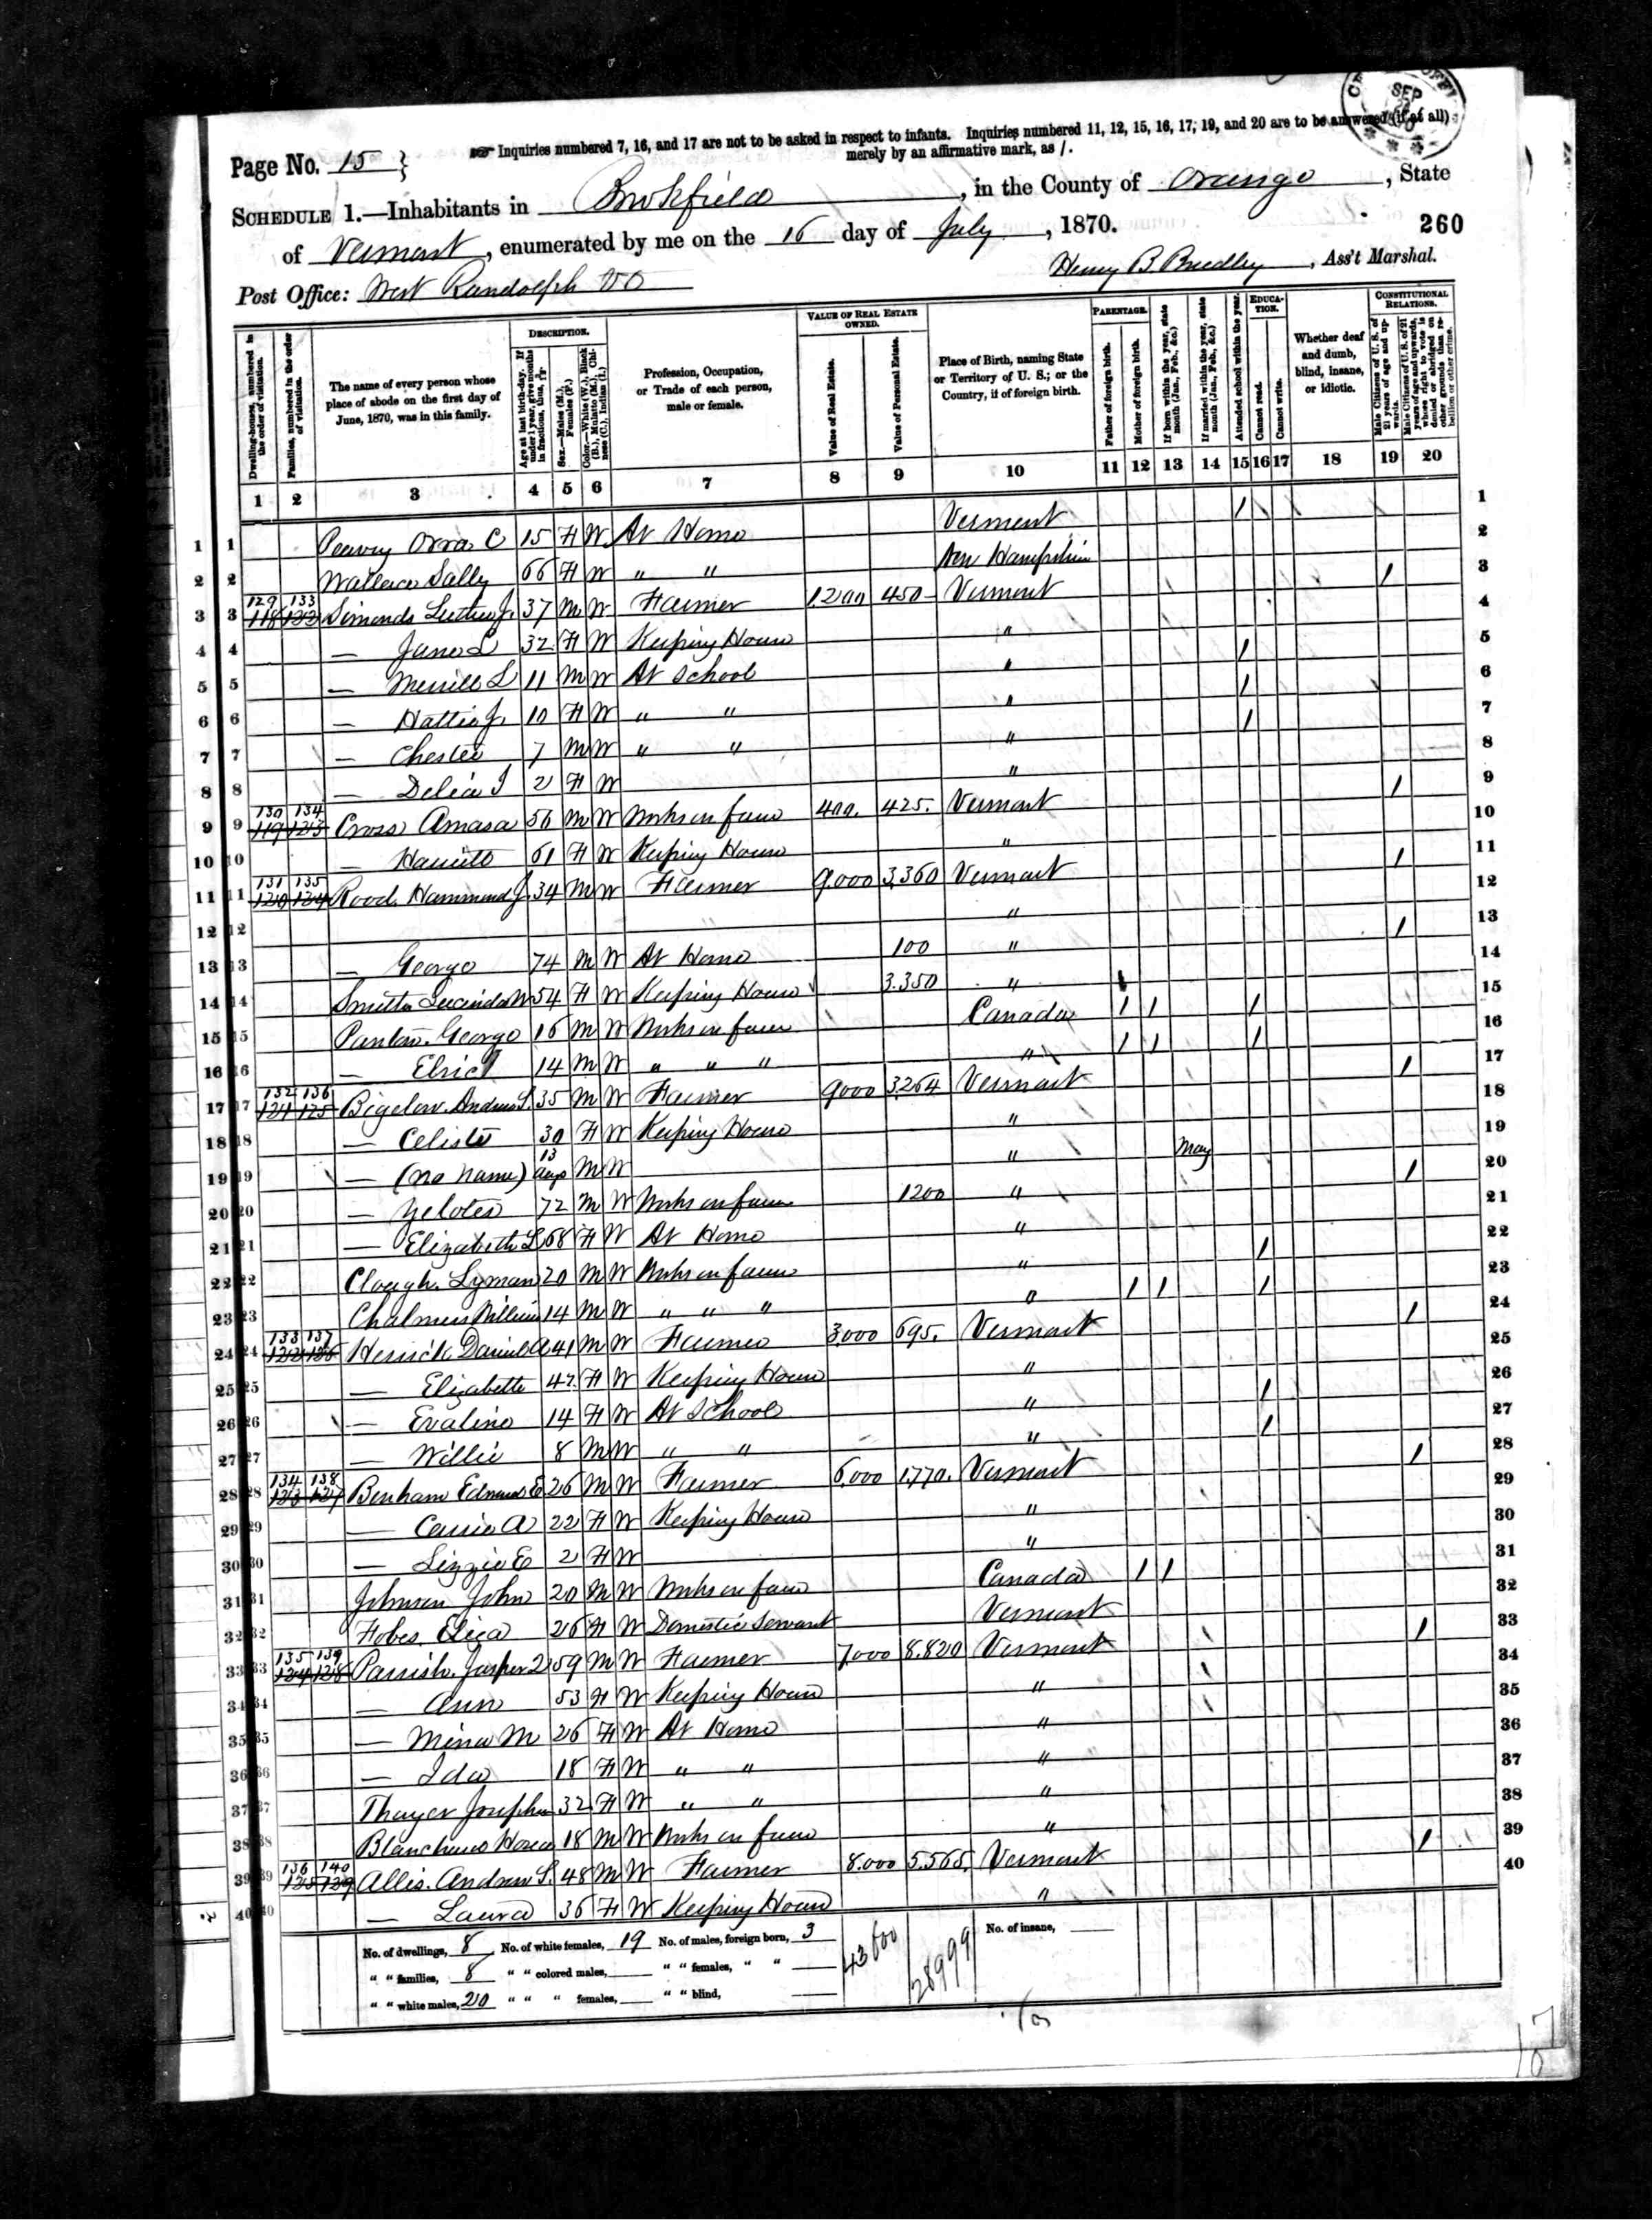 ☞ Inquiries numbered 7, 16, and 17 are not to be asked in respect to infants. Inquiries numbered 11, 12, 15, 16, 17, 19, and 20 are to be answered (if at all)
merely by an affirmative mark, as /.
Page No. 15
SCHEDULE 1.—Inhabitants in Brookfield, in the County of Orange, State
of Vermont, enumerated by me on the 16 day of July, 1870.
260
Post Office: West Randolph
Henry B. , Ass't Marshal.
Dwelling-houses, numbered in the order of visitation.
Families, numbered in the order of visitation.
The name of every person whose place of abode on the first day of June, 1870, was in this family.
DESCRIPTION.
Age at last birth-day. If under 1 year, give months in fractions, thus, 3/12
Sex.—Males (M.), Females (F.)
Color.—White (W.), Black (B.), Mulatto (M.), Chinese (C.), Indian (I.)
Profession, Occupation, or Trade of each person, male or female.
VALUE OF REAL ESTATE OWNED.
Value of Real Estate.
Value of Personal Estate.
Place of Birth, naming State or Territory of U. S.; or the Country, if of foreign birth.
PARENTAGE.
Father of foreign birth.
Mother of foreign birth.
If born within the year, state month (Jan., Feb., &c.)
If married within the year, state month (Jan., Feb., &c.)
Attended school within the year.
EDUCATION.
Cannot read.
Cannot write.
Whether deaf and dumb, blind, insane, or idiotic.
CONSTITUTIONAL RELATIONS.
Male Citizens of U. S. of 21 years of age and upwards.
Male Citizens of U. S. of 21 years of age and upwards, whose right to vote is denied or abridged on other grounds than rebellion or other crime.
1 2 3 4 5 6 7 8 9 10 11 12 13 14 15 16 17 18 19 20
1 Peavey Orra C 15 F W At Home Vermont / 1
2 Wallace Sally 66 F W " " New Hampshire 2
3 129 133 118 122 Simonds Luther J. 37 M W Farmer 1200 450 Vermont / 3
4 — Jane L 32 F W Keeping House " 4
5 — Merrill L 11 M W At School " / 5
6 — Hattie J. 10 F W " " " / 6
7 — Chester 7 M W " " " / 7
8 — Delia 2 F W " 8
9 130 134 119 123 Cross Amasa 56 M W Works on farm 400 425 Vermont / 9
10 — Harriett 61 F W Keeping House " 10
11 131 135 120 124 Rood Hammond J 34 M W Farmer 9.000 3.360 Vermont / 11
12 " 12
13 — George 74 M W At Home 100 " / 13
14 Smith Lucinda W 54 F W Keeping House 3.350 " 14
15 George 16 M W Works on farm Canada / / / 15
16 — 14 M W " " " " / / / 16
17 132 136 121 125 Bigelow Andrew S. 35 M W Farmer 9000 3.264 Vermont / 17
18 — Celiste 30 F W Keeping House " 18
19 — (no name) 13 days M W " May 19
20 — Zelotes 72 M W Works on farm 1200 " / 20
21 — Elizabeth L 68 F W At Home " 21
22 Clough Lyman 20 M W Works on farm " / 22
23 Chalmers William 14 M W " " " " / / / 23
24 133 137 122 126 Herrick Daniel A 41 M W Farmer 3.000 695. Vermont / 24
25 — Elizabeth 42 F W Keeping House " 25
26 — Evaline 14 F W At School " / 26
27 — Willie 8 M W " " " / 27
28 134 138 123 127 Benham Edmund E 26 M W Farmer 6.000 1.770. Vermont / 28
29 — Carrie A 22 F W Keeping House " 29
30 — Lizzie E 2 F W " 30
31 Johnson John 20 M W Works on farm Canada / / 31
32 Fobes Eliza 26 F W Domestic Servant Vermont 32
33 135 139 124 128 Parrish Jasper 59 M W Farmer 7.000 8.820 Vermont / 33
34 — Ann 53 F W Keeping House " 34
35 — Mina M 26 F W At Home " 35
36 — Ida 18 F W " " " 36
37 Thayer Josephine 32 F W " " " 37
38 Blanchard Hosea 18 M W Works on farm " 38
39 136 140 125 129 Allis Andrew S. 48 M W Farmer 8.000 5.565. Vermont / 39
40 — Laura 36 F W Keeping House " 40
No. of dwellings, 8 No. of white females, 19 No. of males, foreign born, 3 43600 28999 No. of insane,
" " families, 8 " " colored males, " " females, " "
" " white males, 20 " " " females, " " blind,